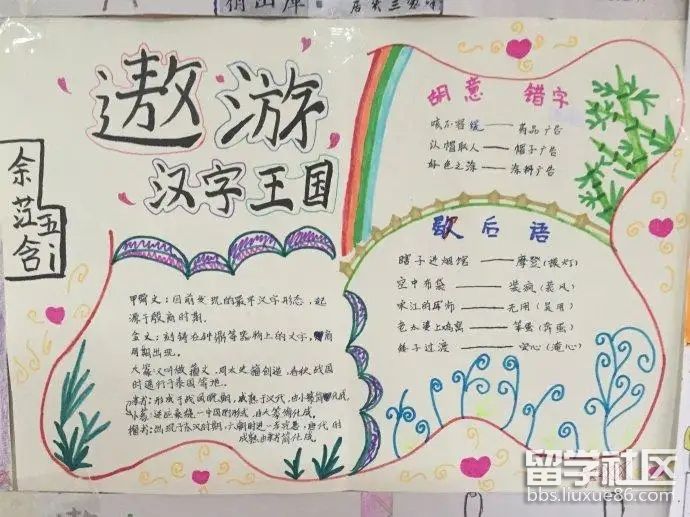 遨游
汉字王国
余
五
甲骨文：目前发现的最早汉字形态，起
源于殷商时期。
金文：刻铸在钟鼎等器物上的文字，商
周期出现。
大篆：又叫做籀文，周太史籀创造，春秋战国
时通行于秦国等地。
隶书：形成于战国晚期，成熟于汉代，由小篆简化成。
小篆
楷书：出现于东汉时期，六朝时进一步完善，唐代时
成熟，由隶书简化成。
胡意 错字
咳不容缓——药品广告
以帽取人——帽子广告
好色之涂——涂料广告
歇后语
瞎子进烟馆——摩登（摸灯）
空中布袋——装疯（装风）
宋江的军师——无用（吴用）
老太婆上鸡窝——笨蛋（奔蛋）
过渡——安心
留学社区
bbs.liuxue86.com